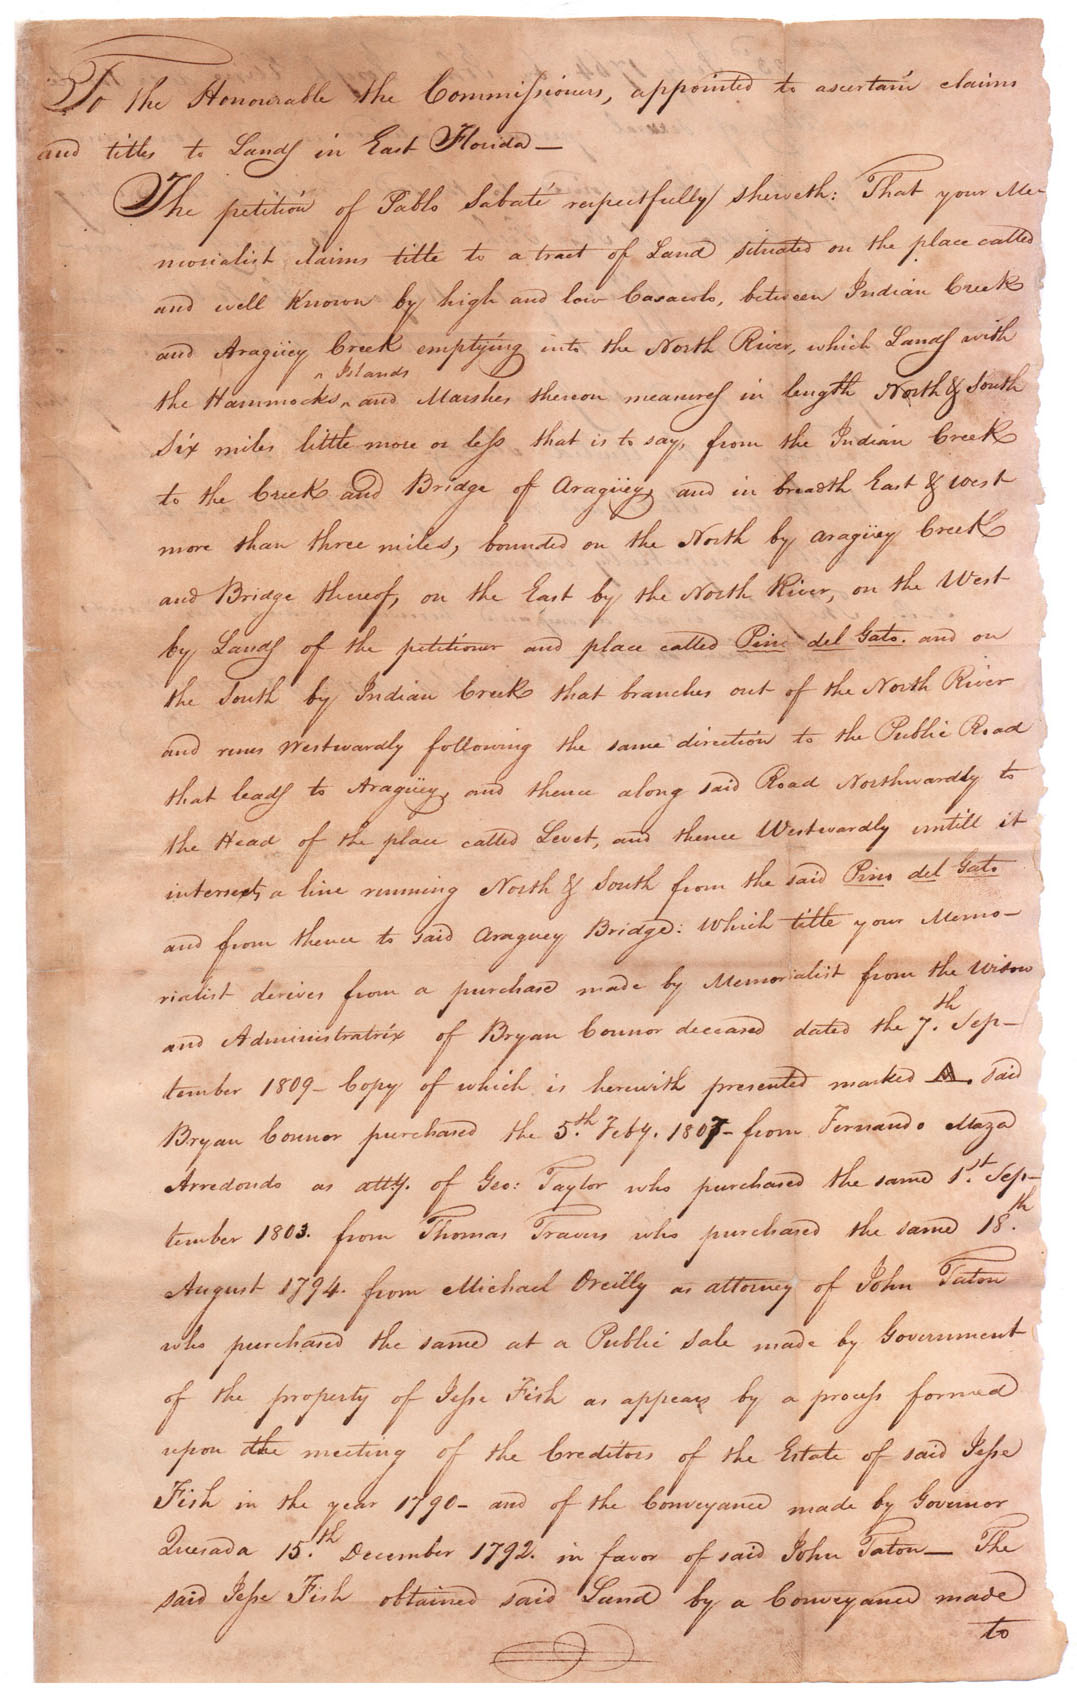 To the Honourable the Commissioners, appointed to ascertain claims
and titles to Lands in East Florida—
The petition of Pablo Sabaté respectfully sheweth: That your Me-
morialist claims title to a tract of Land situated on the place called
and well Known by high and low Casacolo, between Indian Creek
and Aragüey Creek emptying into the North River, which Lands with
^ Islands
the Hammocks ^ and Marshes thereon measures in length North & South
Six miles little more or less that is to say, from the Indian Creek
to the Creek and Bridge of Aragüey, and in breadth East & West
more than three miles, bounded on the North by Aragüey Creek
and Bridge thereof, on the East by the North River, on the West
by Lands of the petitioner and place called Pino del Gato. and on
the South by Indian Creek that branches out of the North River
and runs Westwardly following the same direction to the Public Road
that leads to Aragüey, and thence along said Road Northwardly to
the Head of the place called Levet, and thence Westwardly untill it
intersects, a line running North & South from the said Pino del Gato
and from thence to said Araguey Bridge: Which title your Memo-
rialist derives from a purchase made by Memorialist from the Widow
and Administratrix of Bryan Connor deceased dated the 7.th Sep-
tember 1809– Copy of which is herewith presented marked A. said
Bryan Connor purchased the 5.th Feby. 1807– from Fernando Maza
Arredondo as atty. of Geo: Taylor who purchased the same 1.st Sep-
tember 1803. from Thomas Travers who purchased the same 18.th
August 1794. from Michael Oreilly as attorney of John Taton
who purchased the same at a Public Sale made by Government
of the property of Jesse Fish as appears by a process formed
upon the meeting of the Creditors of the Estate of said Jesse
Fish in the year 1790– and of the Conveyance made by Governor
Quesada 15.th December 1792. in favor of said John Taton— The
said Jesse Fish obtained said Land by a Conveyance made
to